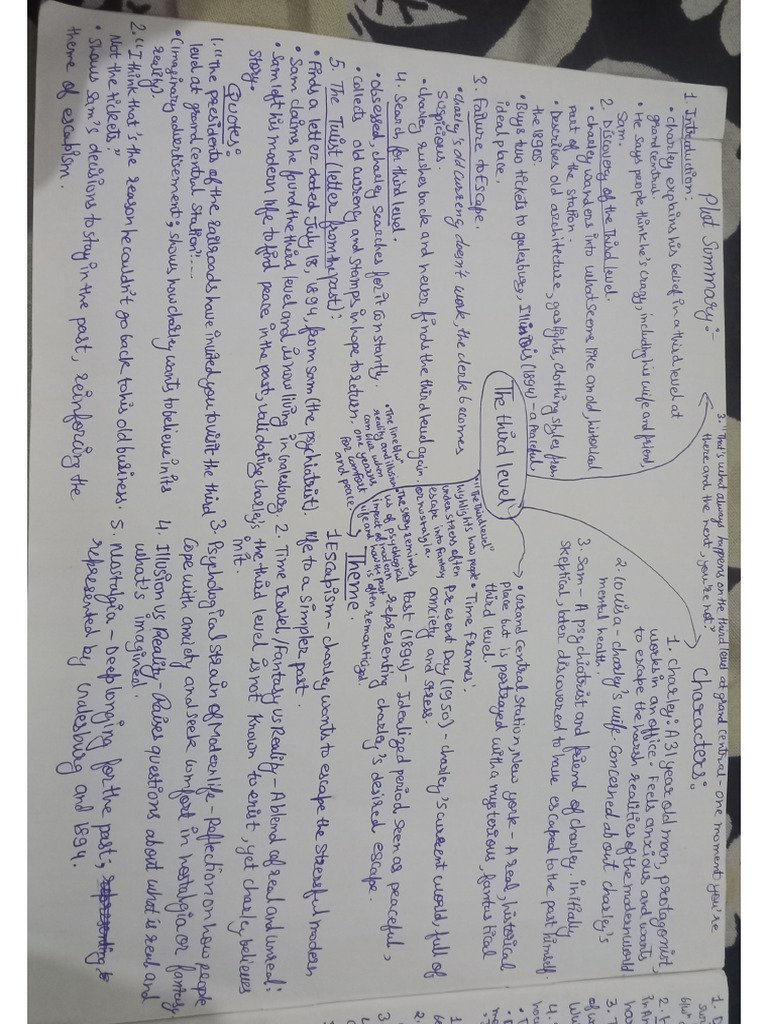 Plot Summary:-
1. Introduction:
• charley explains his belief in a third level at
grand central.
• He says people think he's crazy, including his wife and friend,
Sam.
2. Discovery of the Third level.
• charley wanders into what seems like an old, historical
part of the station.
• Describes old architecture, gaslights, clothing styles from
the 1890s.
• Buys two tickets to galesburg, Illinois (1894) - a Peaceful
ideal place.
3. Failure to Escape.
• charley's old currency doesn't work, the clerk becomes
suspicious.
• charley rushes back and never finds the third level again.
4. Search for third level.
• obsessed, charley searches for it constantly.
• collects old currency and stamps in hope to return.
5. The Twist (letter from the past):
• Finds a letter dated July 18, 1894, from Sam (the psychiatrist).
• Sam claims he found the third level and is now living in Galesburg
• Sam left his modern life to find peace in the past, validating charley's
story.
Quotes:
1. "The presidents of the railroads have invited you to visit the third
level at grand central station"....
• (imaginary advertisement; shows how charley wants to believe in its
reality).
2. "I think that's the reason he couldn't go back to his old business.
Not the tickets."
• shows Sam's decisions to stay in the past, reinforcing the
theme of escapism.
3. "That's what always happens on the third level at grand central - one moment you're
there and the next, you're not."
The third level
Characters:
1. charley: A 31 year old man, protagonist,
works in an office. Feels anxious and wants
to escape the harsh realities of the modern world
2. louisa - charley's wife. Concerned about charley's
mental health.
3. Sam - A psychiatrist and friend of charley. initially
skeptical, later discovered to have escaped to the past himself.
• Grand Central Station, New york - A real, historical
place but is portrayed with a mysterious, fantastical
third level.
• Time frames:
Present Day (1950) - charley's current world, full of
anxiety and stress.
Past (1894) - Idealized period seen as peaceful,
representing charley's desired escape.
• "The Third level"
highlights how people
under stress often
escape into fantasy
or nostalgia.
• The story reminds
us of psychological
impact of modern
life and how the past
is often romanticized.
• The line b/w
reality and illusion
can blur when
one yearns
for comfort
and peace.
Theme.
1 Escapism - charley wants to escape the stressful modern
life to a simpler past.
2. Time Travel / Fantasy vs Reality - A blend of real and unreal:
the third level is not known to exist, yet charley believes
in it.
3. Psychological strain of Modern life - Reflection on how people
cope with anxiety and seek comfort in nostalgia or fantasy
4. Illusion vs Reality - Raises questions about what is real and
what's imagined.
5. Nostalgia - Deep longing for the past,
represented by Gndlesburg and 1894.